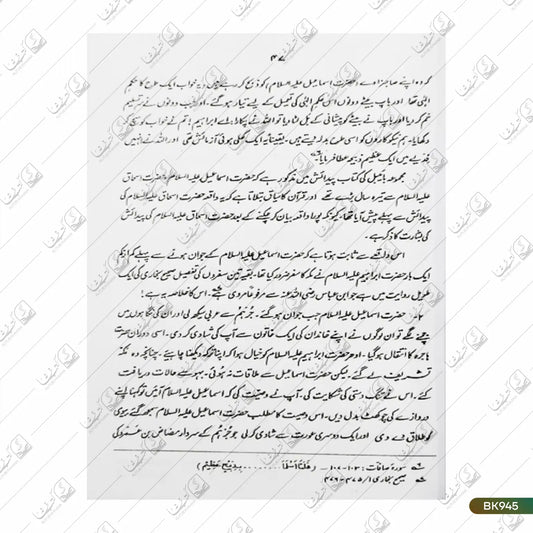 ۴۷
کہ وہ اپنے صاحبزادے (حضرت اسماعیل علیہ السلام) کو ذبح کر رہے ہیں۔ یہ خواب ایک طرح کا حکم
الٰہی تھا اور باپ بیٹے دونوں اس حکم الٰہی کی تعمیل کے لیے تیار ہو گئے۔ اور جب دونوں نے تسلیم
خم کر دیا اور باپ نے بیٹے کو پیشانی کے بل لٹا دیا تو اللہ نے پکارا: اے ابراہیم! تم نے خواب کو سچ کر
دکھایا۔ ہم نیکو کاروں کو اسی طرح بدلہ دیتے ہیں۔ یقیناً یہ ایک کھلی ہوئی آزمائش تھی اور اللہ نے انھیں
فدیے میں ایک عظیم ذبیحہ عطا فرمایا۔
مجموعہ بائیبل کی کتاب پیدائش میں مذکور ہے کہ حضرت اسماعیل علیہ السلام، حضرت اسحاق
علیہ السلام سے تیرہ سال بڑے تھے اور قرآن کا سیاق بتلاتا ہے کہ یہ واقعہ حضرت اسحاق علیہ السلام کی
پیدائش سے پہلے پیش آیا تھا۔ کیونکہ پورا واقعہ بیان کر چکنے کے بعد حضرت اسحاق علیہ السلام کی پیدائش
کی بشارت کا ذکر ہے۔
اس واقعے سے ثابت ہوتا ہے کہ حضرت اسماعیل علیہ السلام کے جوان ہونے سے پہلے کم از کم
ایک بار حضرت ابراہیم علیہ السلام نے مکہ کا سفر ضرور کیا تھا۔ بقیہ تین سفروں کی تفصیل صحیح بخاری کی ایک
طویل روایت میں ہے جو ابن عباس رضی اللہ عنہ سے مرفوعاً مروی ہے۔ اس کا خلاصہ یہ ہے!
۲۔ حضرت اسماعیل علیہ السلام جب جوان ہو گئے۔ جرہم سے عربی سیکھ لی اور ان کی نگاہوں میں
جچنے لگے تو ان لوگوں نے اپنے خاندان کی ایک خاتون سے آپ کی شادی کر دی۔ اسی دوران حضرت
ہاجرہ کا انتقال ہو گیا۔ ادھر حضرت ابراہیم علیہ السلام کو خیال ہوا کہ اپنا ترکہ دیکھنا چاہیے۔ چنانچہ وہ مکہ
تشریف لے گئے۔ لیکن حضرت اسماعیل سے ملاقات نہ ہوئی۔ بہو سے حالات دریافت
کئے۔ اس نے تنگ دستی کی شکایت کی۔ آپ نے وصیت کی کہ اسماعیل علیہ السلام آئیں تو کہنا اپنے
دروازے کی چوکھٹ بدل دیں۔ اس وصیت کا مطلب حضرت اسماعیل علیہ السلام سمجھ گئے بیوی
کو طلاق دے دی اور ایک دوسری عورت سے شادی کر لی جو جرہم کے سردار مضاض بن عمرو کی
سورہ صافات: ۱۰۳-۱۰۷ (فَلَمَّا أَسْلَمَا ........ بِذِبْحٍ عَظِيمٍ)
صحیح بخاری ۱/۴۷۵-۴۷۶
BK945